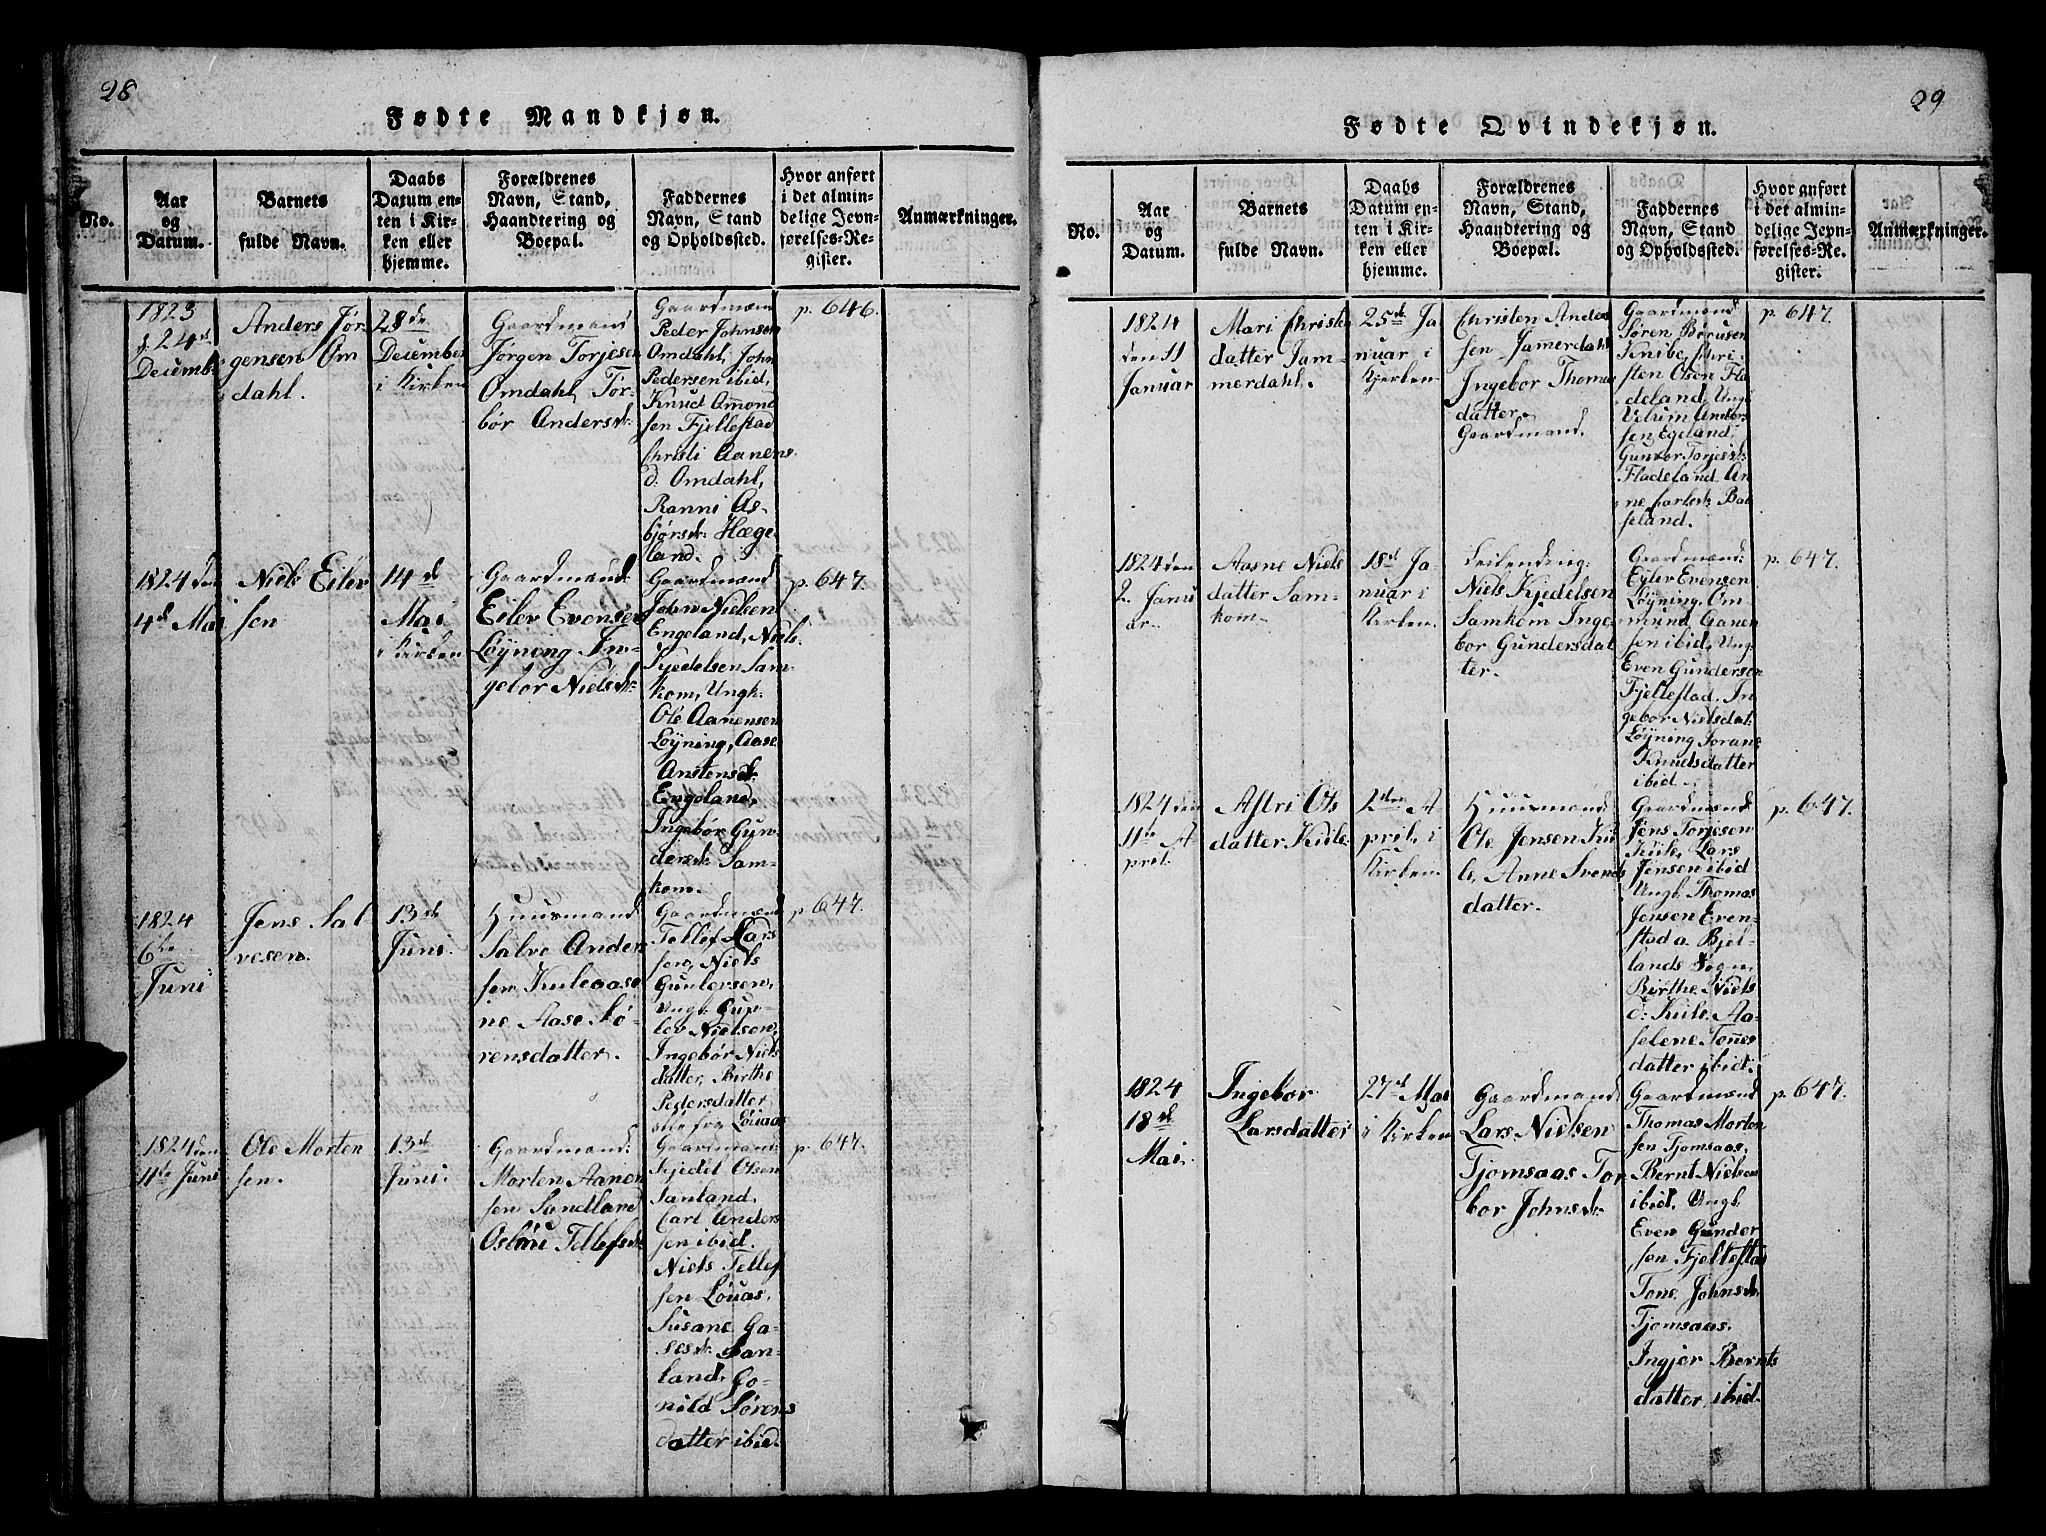 28
Fødte Mandkjøn.
No.
Aar
og
Datum.
Barnets
fulde Navn.
Daabs
Datum en-
ten i Kir-
ken eller
hjemme.
Forældrenes
Navn, Stand,
Haandtering og
Boepal.
Faddernes
Navn, Stand
og Opholdssted.
Hvor anført
i det almin-
delige Jevn-
førelses-Re-
gister.
Anmærkninger.
1823
24de
Decembr
Anders Jør
gensen Om
dahl.
28de
December
i Kirken
Gaardmand
Jørgen Torjesen
Omdahl, Tor-
bør Andersd:
Gaardmænd
Peder Johnsen
Omdahl, John
Pedersen ibid,
Knud Omond
sen Fjellestad
Christi Aanens
d: Omdahl,
Ranni As-
bjørsd: Hæge-
land.
p. 646.
1824 den
4de Mai
Niels Eilev
sen
14de
Mai
i Kirken
Gaardmand
Eilev Evensen
Løyning In-
gebor Nielsd:
Gaardmænd
John Nielsen
Engeland, Niels
Kjedelsen Sam-
kom, Ungk.
Ole Aanensen
Løyning, Aase
Anstensd:
Engeland,
Ingebør Gun-
dersd: Sam-
kom.
p. 647.
1824
6te
Juni
Jens Sal
vesen.
13de
Juni.
Huusmand
Salve Anders
sen Kuleaase
ne Aase Sø-
rensdatter.
Gaardmænd
Tellef Lars
sen, Niels
Gundersen,
Ungk. Gun-
lev Nielsen,
Ingebør Niels
datter, Birthe
Pedersdatter
alle fra Løuaas
p. 647.
1824 den
11te Juni
Ole Morten
sen.
13de
Juni.
Gaardmand:
Morten Aanen
sen Sandland
Osløue Tellefsd:
Gaardmænd:
Kjedel Olsen
Sanland,
Carl Anders
sen ibid.
Niels Tellef
sen Løuas,
Susane Ga-
sesd: San-
land, Go-
nild Sørens
datter ibid.
p. 647.
29
Fødte Qvindekjøn.
No.
Aar
og
Datum.
Barnets
fulde Navn.
Daabs
Datum en-
ten i Kir-
ken eller
hjemme.
Forældrenes
Navn, Stand,
Haandtering og
Boepal.
Faddernes
Navn, Stand
og Opholdssted.
Hvor anført
i det almin-
delige Jevn-
førelses-Re-
gister.
Anmærkninger.
1824
den 11
Januar
Mari Christen
datter Jam-
merdahl.
25de Ja
nuar i
Kjerken
Christen Ander
sen Jamerdahl
Ingebor Thomas
datter.
Gaardmand.
Gaardmænd
Søren Børusen
Knibe, Chri-
sten Olsen Fla
deland, Ungk
Velum Anders
sen Egeland,
Gunvor Torjesd:
Fladeland An
ne Carlsd: Bal
seland.
p. 647.
1824 den
2. Janu
ar.
Aasne Niels
datter Sam-
kom.
18de Ja-
nuar i
Kirken.
Leilending:
Niels Kjedelsen
Samkom Inge
bor Gundersdat
ter.
Gaardmænd:
Eilev Evensen
Løyning, Om
mund Aanen
sen ibid, Ung.
Even Gundersen
Fjellestad. In
gebor Nielsdat:
Løyning Joran
Knudsdatter
ibid.
p. 647.
1824 den
11te A
pril.
Astri Ols
datter Kuile
2den A
pril, i
Kirken
Huusmand
Ole Jensen Kui
le, Anne Svends
datter.
Gaardmænd
Jens Torjesen
Kuile, Lars
Jensen ibid
Ungk. Thomas
Jensen Even-
stad a. Bjel-
lands Sogn,
Berthe Niels
d: Kuile, Aa-
selene Tønes
datter ibid.
p. 647.
1824
18de
Mai.
Ingebor
Larsdatter
27de Mai
i Kirken
Gaardmand
Lars Nielsen
Tjomsaas Tor
bor Johnsd:
Gaardmænd
Thomas Morten
sen Tjomsaas,
Bernt Nielsen
ibid, Ungk.
Even Gunder
sen Fjellestad
Tone Johnsd:
Tjomsaas.
Ingjer Bernts
datter, ibid.
p. 647.